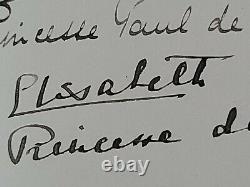 Princesse Paul de
Elisabeth
Princesse de